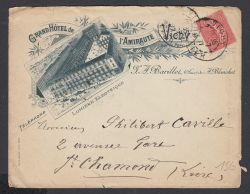 GRAND HÔTEL de
l'AMIRAUTÉ
VICHY
J. J. Barillot,
TÉLÉPHONE
LUMIÈRE ÉLECTRIQUE
Monsieur Philibert Caville
2 avenue Gare
St Chamond
(Loire)